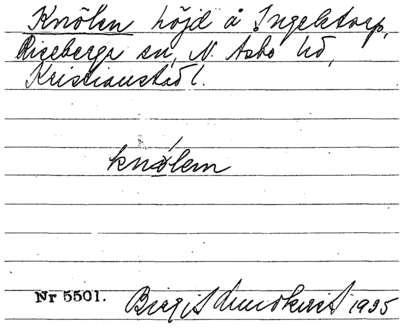 Knölen höjd å Ingelstorp,
Riseberga sn, N. Åsbo hd,
Kristianstad l.
knölem
Nr 5501. Birgit Lundkvist 1935